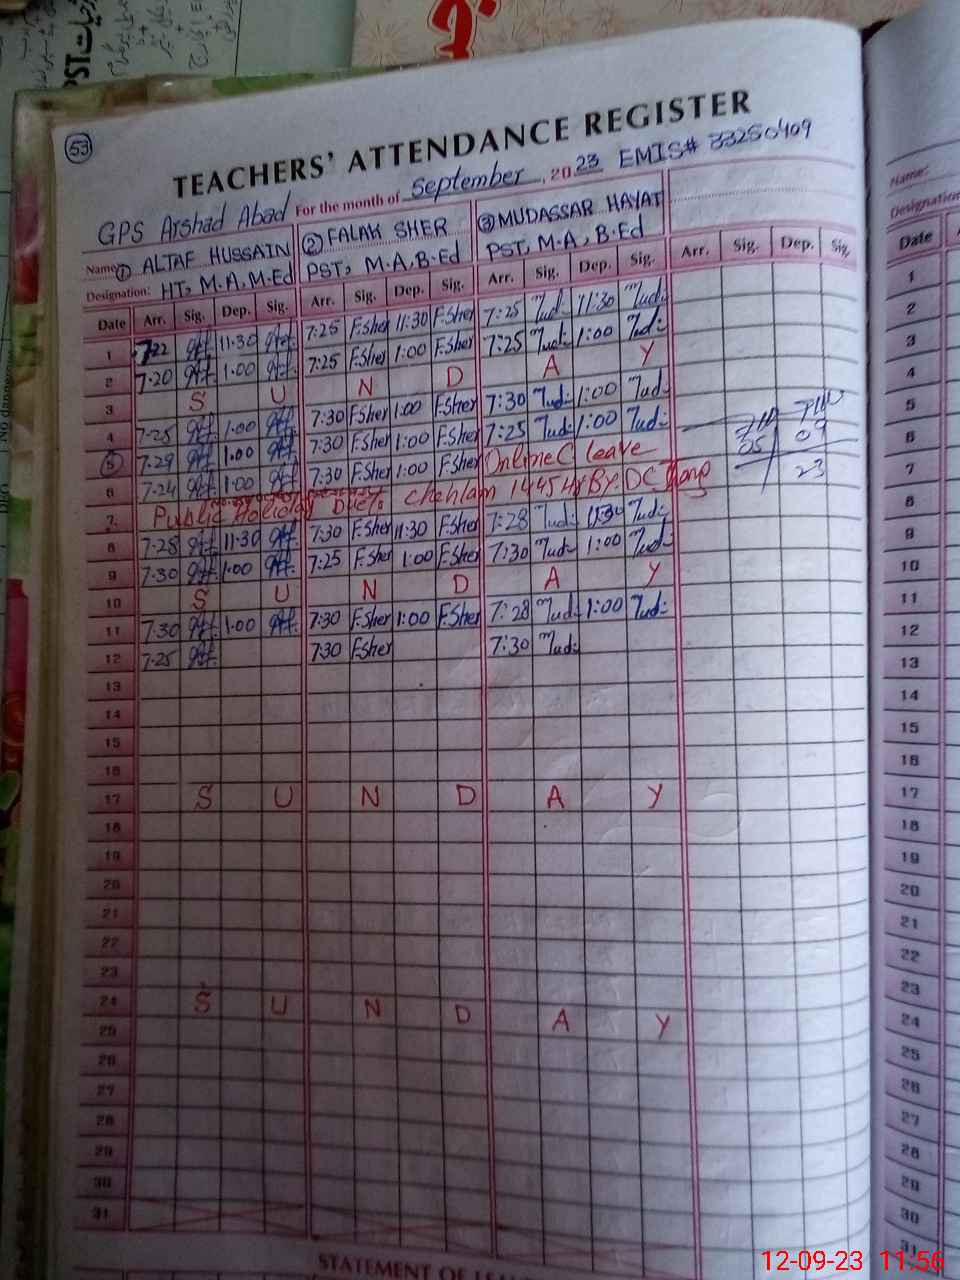 53
TEACHERS' ATTENDANCE REGISTER
GPS Arshad Abad For the month of September, 2023 EMIS# 33250409
Name: ① ALTAF HUSSAIN ② FALAK SHER ③ MUDASSAR HAYAT
Designation: HT, M.A, M.Ed PST, M.A, B.Ed PST, M.A, B.Ed
Date Arr. Sig. Dep. Sig. Arr. Sig. Dep. Sig. Arr. Sig. Dep. Sig. Arr. Sig. Dep. Sig.
1 7:22 11:30 7:25 F.Sher 11:30 F.Sher 7:25 Mud: 11:30 Mud:
2 7:20 1:00 7:25 F.Sher 1:00 F.Sher 7:25 Mud: 1:00 Mud:
3 S U N D A Y
4 7:25 1:00 7:30 F.Sher 1:00 F.Sher 7:30 Mud: 1:00 Mud:
5 7:29 1:00 7:30 F.Sher 1:00 F.Sher 7:25 Mud: 1:00 Mud:
6 7:24 1:00 7:30 F.Sher 1:00 F.Sher Online C leave
7 Public Holiday Due to Chehlam 1445 H BY DC Jhang
8 7:28 11:30 7:30 F.Sher 11:30 F.Sher 7:28 Mud: 11:30 Mud:
9 7:30 1:00 7:25 F.Sher 1:00 F.Sher 7:30 Mud: 1:00 Mud:
10 S U N D A Y
11 7:30 1:00 7:30 F.Sher 1:00 F.Sher 7:28 Mud: 1:00 Mud:
12 7:25 7:30 F.Sher 7:30 Mud:
13
14
15
16
17 S U N D A Y
18
19
20
21
22
23
24 S U N D A Y
25
26
27
28
29
30
31
05 09
23
Name:
Designation
Date
1
2
3
4
5
6
7
8
9
10
11
12
13
14
15
16
17
18
19
20
21
22
23
24
25
26
27
28
29
30
31
STATEMENT OF
12-09-23 11:56